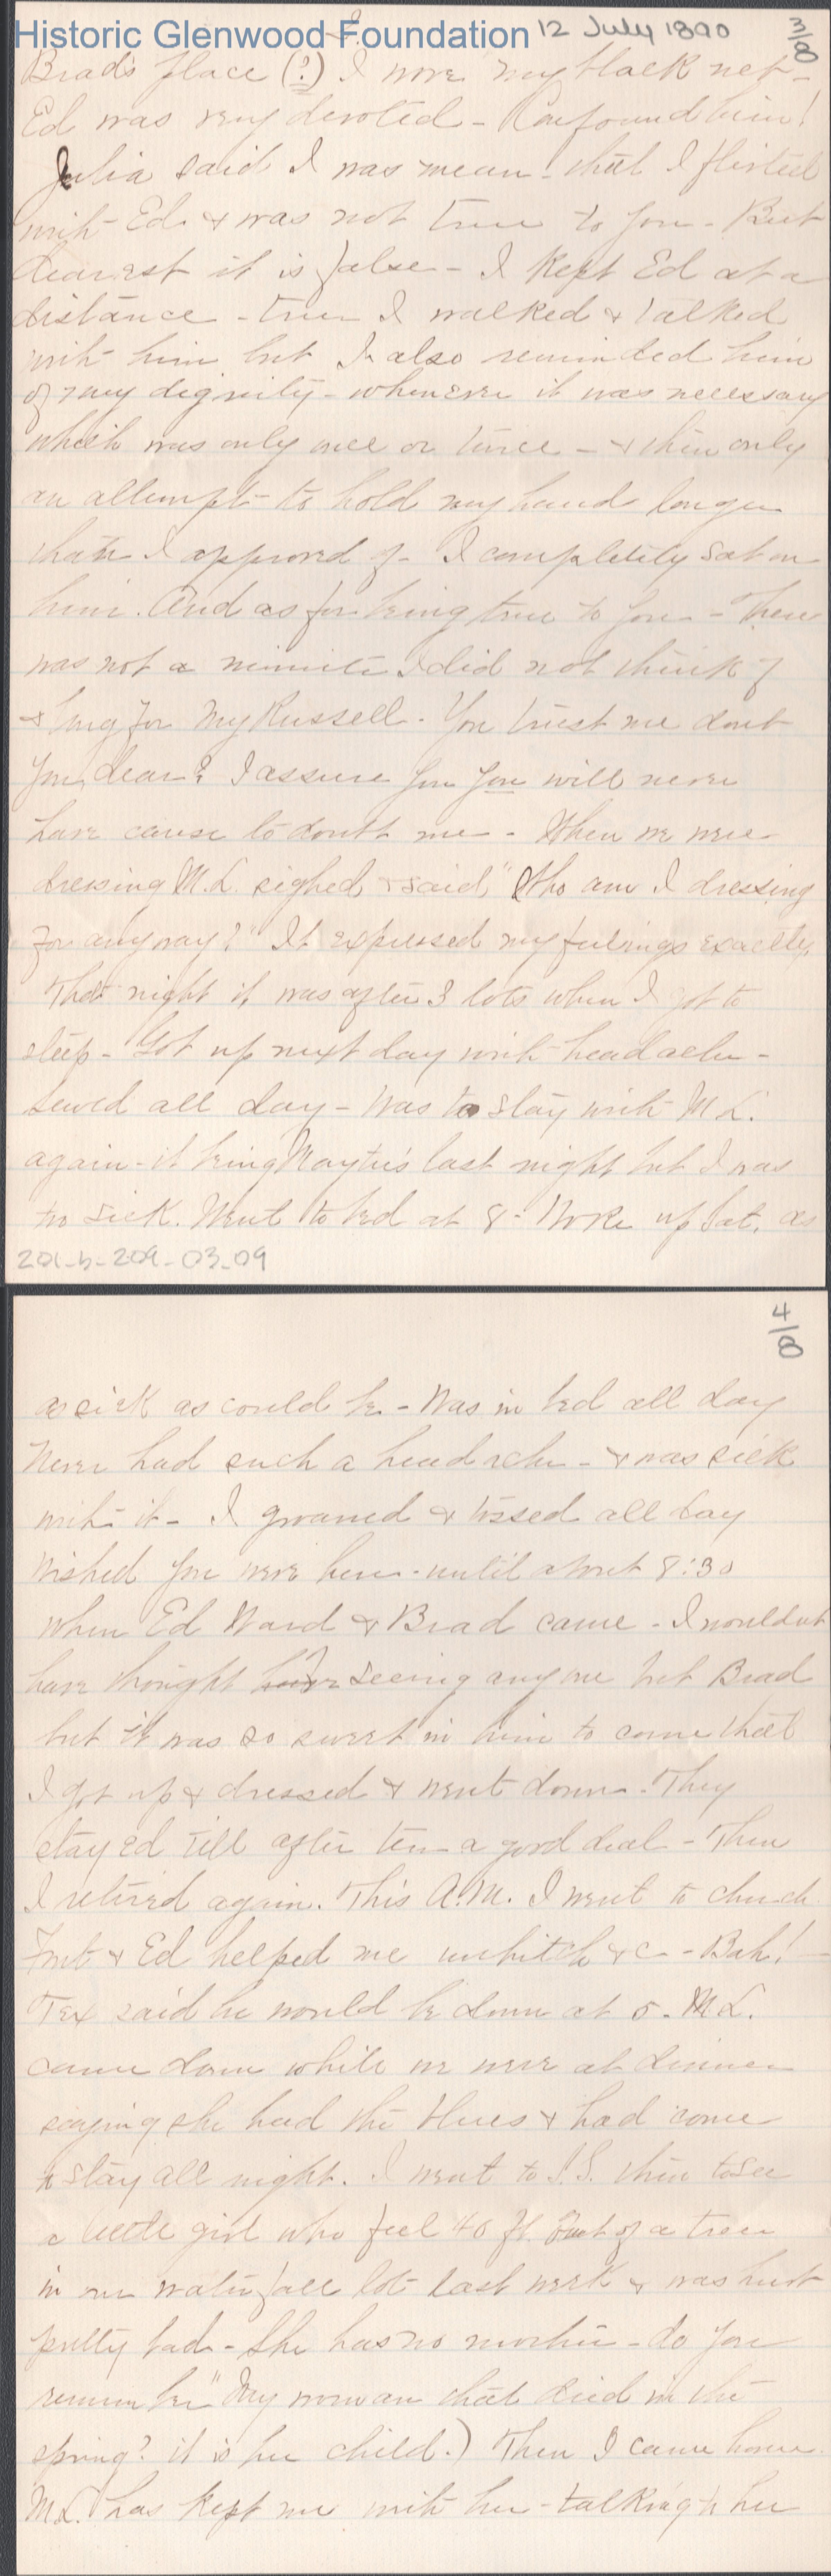 Historic Glenwood Foundation 12 July 1890 3/8
Brad's place (?) I wore my black net -
Ed was very devoted - Confound him!
Julia said I was mean - that I flirted
with Ed. & was not true to you - But
dearest it is false - I kept Ed at a
distance - true I walked & talked
with him but I also reminded him
of my dignity - whenever it was necessary
which was only once or twice - & then only
an attempt to hold my hand longer
than I approved of - I completely sat on
him. And as for being true to you - There
was not a minute I did not think of
& long for My Russell. You trust me dont
you, dear? I assure you you will never
have cause to doubt me - When we were
dressing M.L. sighed & said "Who am I dressing
for anyway?" It expressed my feelings exactly.
That night it was after 3 lots when I got to
sleep - Got up next day with headache -
sewed all day - Was to stay with M L.
again - it being Maytie's last night but I was
too sick. Went to bed at 8 - Woke up Sat. as
201-b-209-03-09
4/8
as sick as could be - Was in bed all day
Never had such a headache - & was sick
with it - I groaned & tossed all day
Wished you were here - until about 8:30
when Ed Ward & Brad came - I wouldn't
have thought of seeing anyone but Brad
but it was so sweet in him to come that
I got up & dressed & went down. They
stayed till after ten - a good deal - Then
I retired again. This A.M. I went to church
& Ed helped me unhitch &c - Bah! -
Tex said he would be down at 5. M L.
came down while we were at dinner
saying she had the blues & had come
to stay all night. I went to S.S. then to see
a little girl who feel 40 ft. out of a tree
in our waterfall lot last week & was hurt
pretty bad - She has no mother - do you
remember "My woman that died in the
spring? it is her child.) Then I came home.
M.L. has kept me with her - talking to her